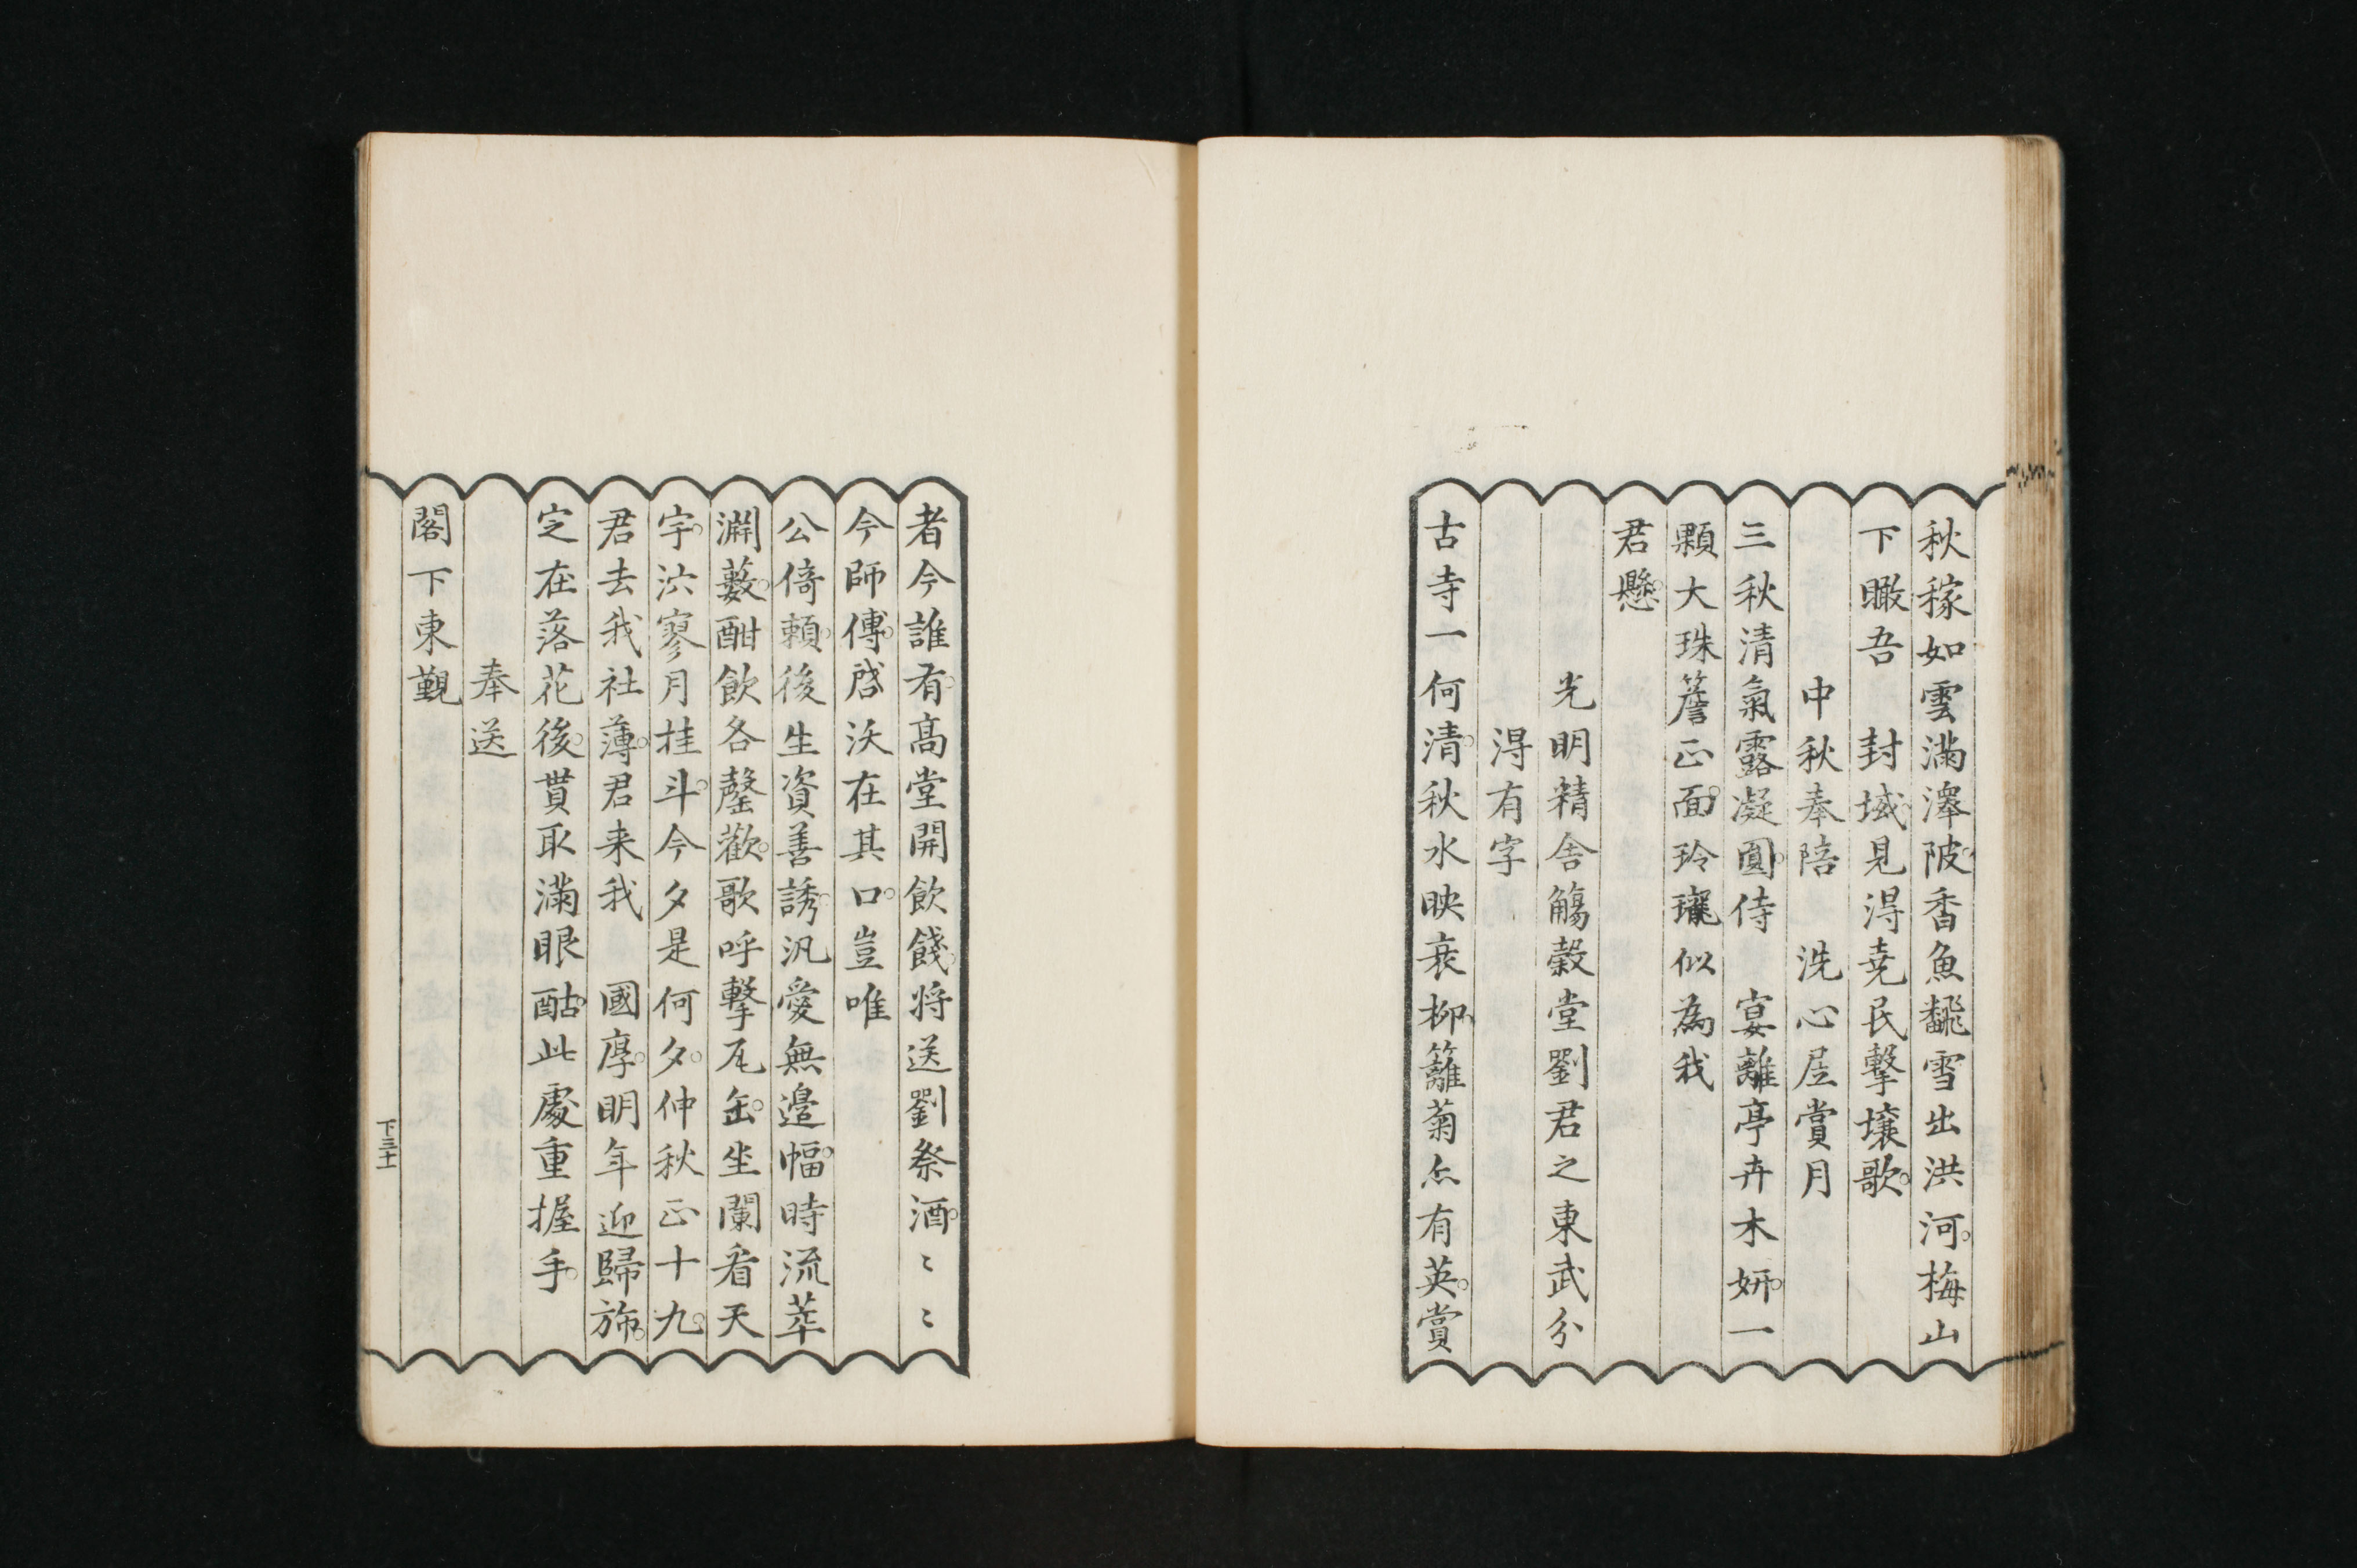 秋稼如雲滿澤陂香魚飜雪出洪河梅山
下瞰吾　封域見淂堯民擊壤歌
中秋奉陪　洗心居賞月
三秋清氣露凝圓侍　宴離亭卉木妍一
顆大珠簷正面玲瓏似為我
君懸
光明精舍觴穀堂劉君之東武分
淂有字
古寺一何清秋水映衰柳籬菊亦有英賞
者今誰有高堂開飲餞將送劉祭酒〻〻
今師傅啓沃在其口豈唯
公倚賴後生資善誘汎愛無邊幅時流萃
淵藪酣飲各罄歡歌呼擊瓦缶坐闌看天
宇泬寥月挂斗今夕是何夕仲秋正十九
君去我社薄君来我　國厚明年迎歸斾
定在落花後貰取滿眼酤此處重握手
奉送
閣下東觀
下三十